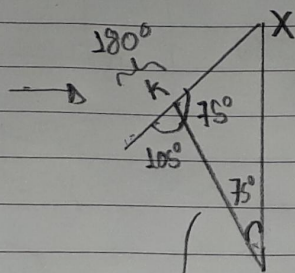 180°
X
K
75°
105°
75°